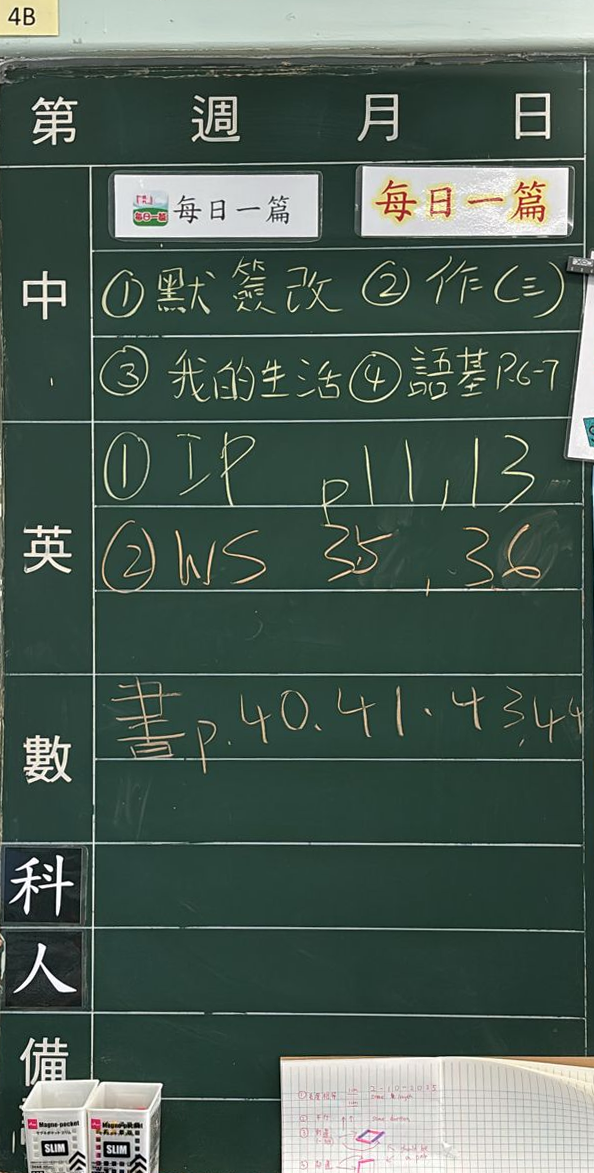 4B
第 週 月 日
每日一篇 每日一篇 每日一篇
中
①默簽改 ②作(三)
③我的生活④語基P.6-7
英
①IP p11,13
②WS 35,36
數
書p.40.41.43,44
科
人
備
Magne-pocket Magne-pocket
SLIM SLIM